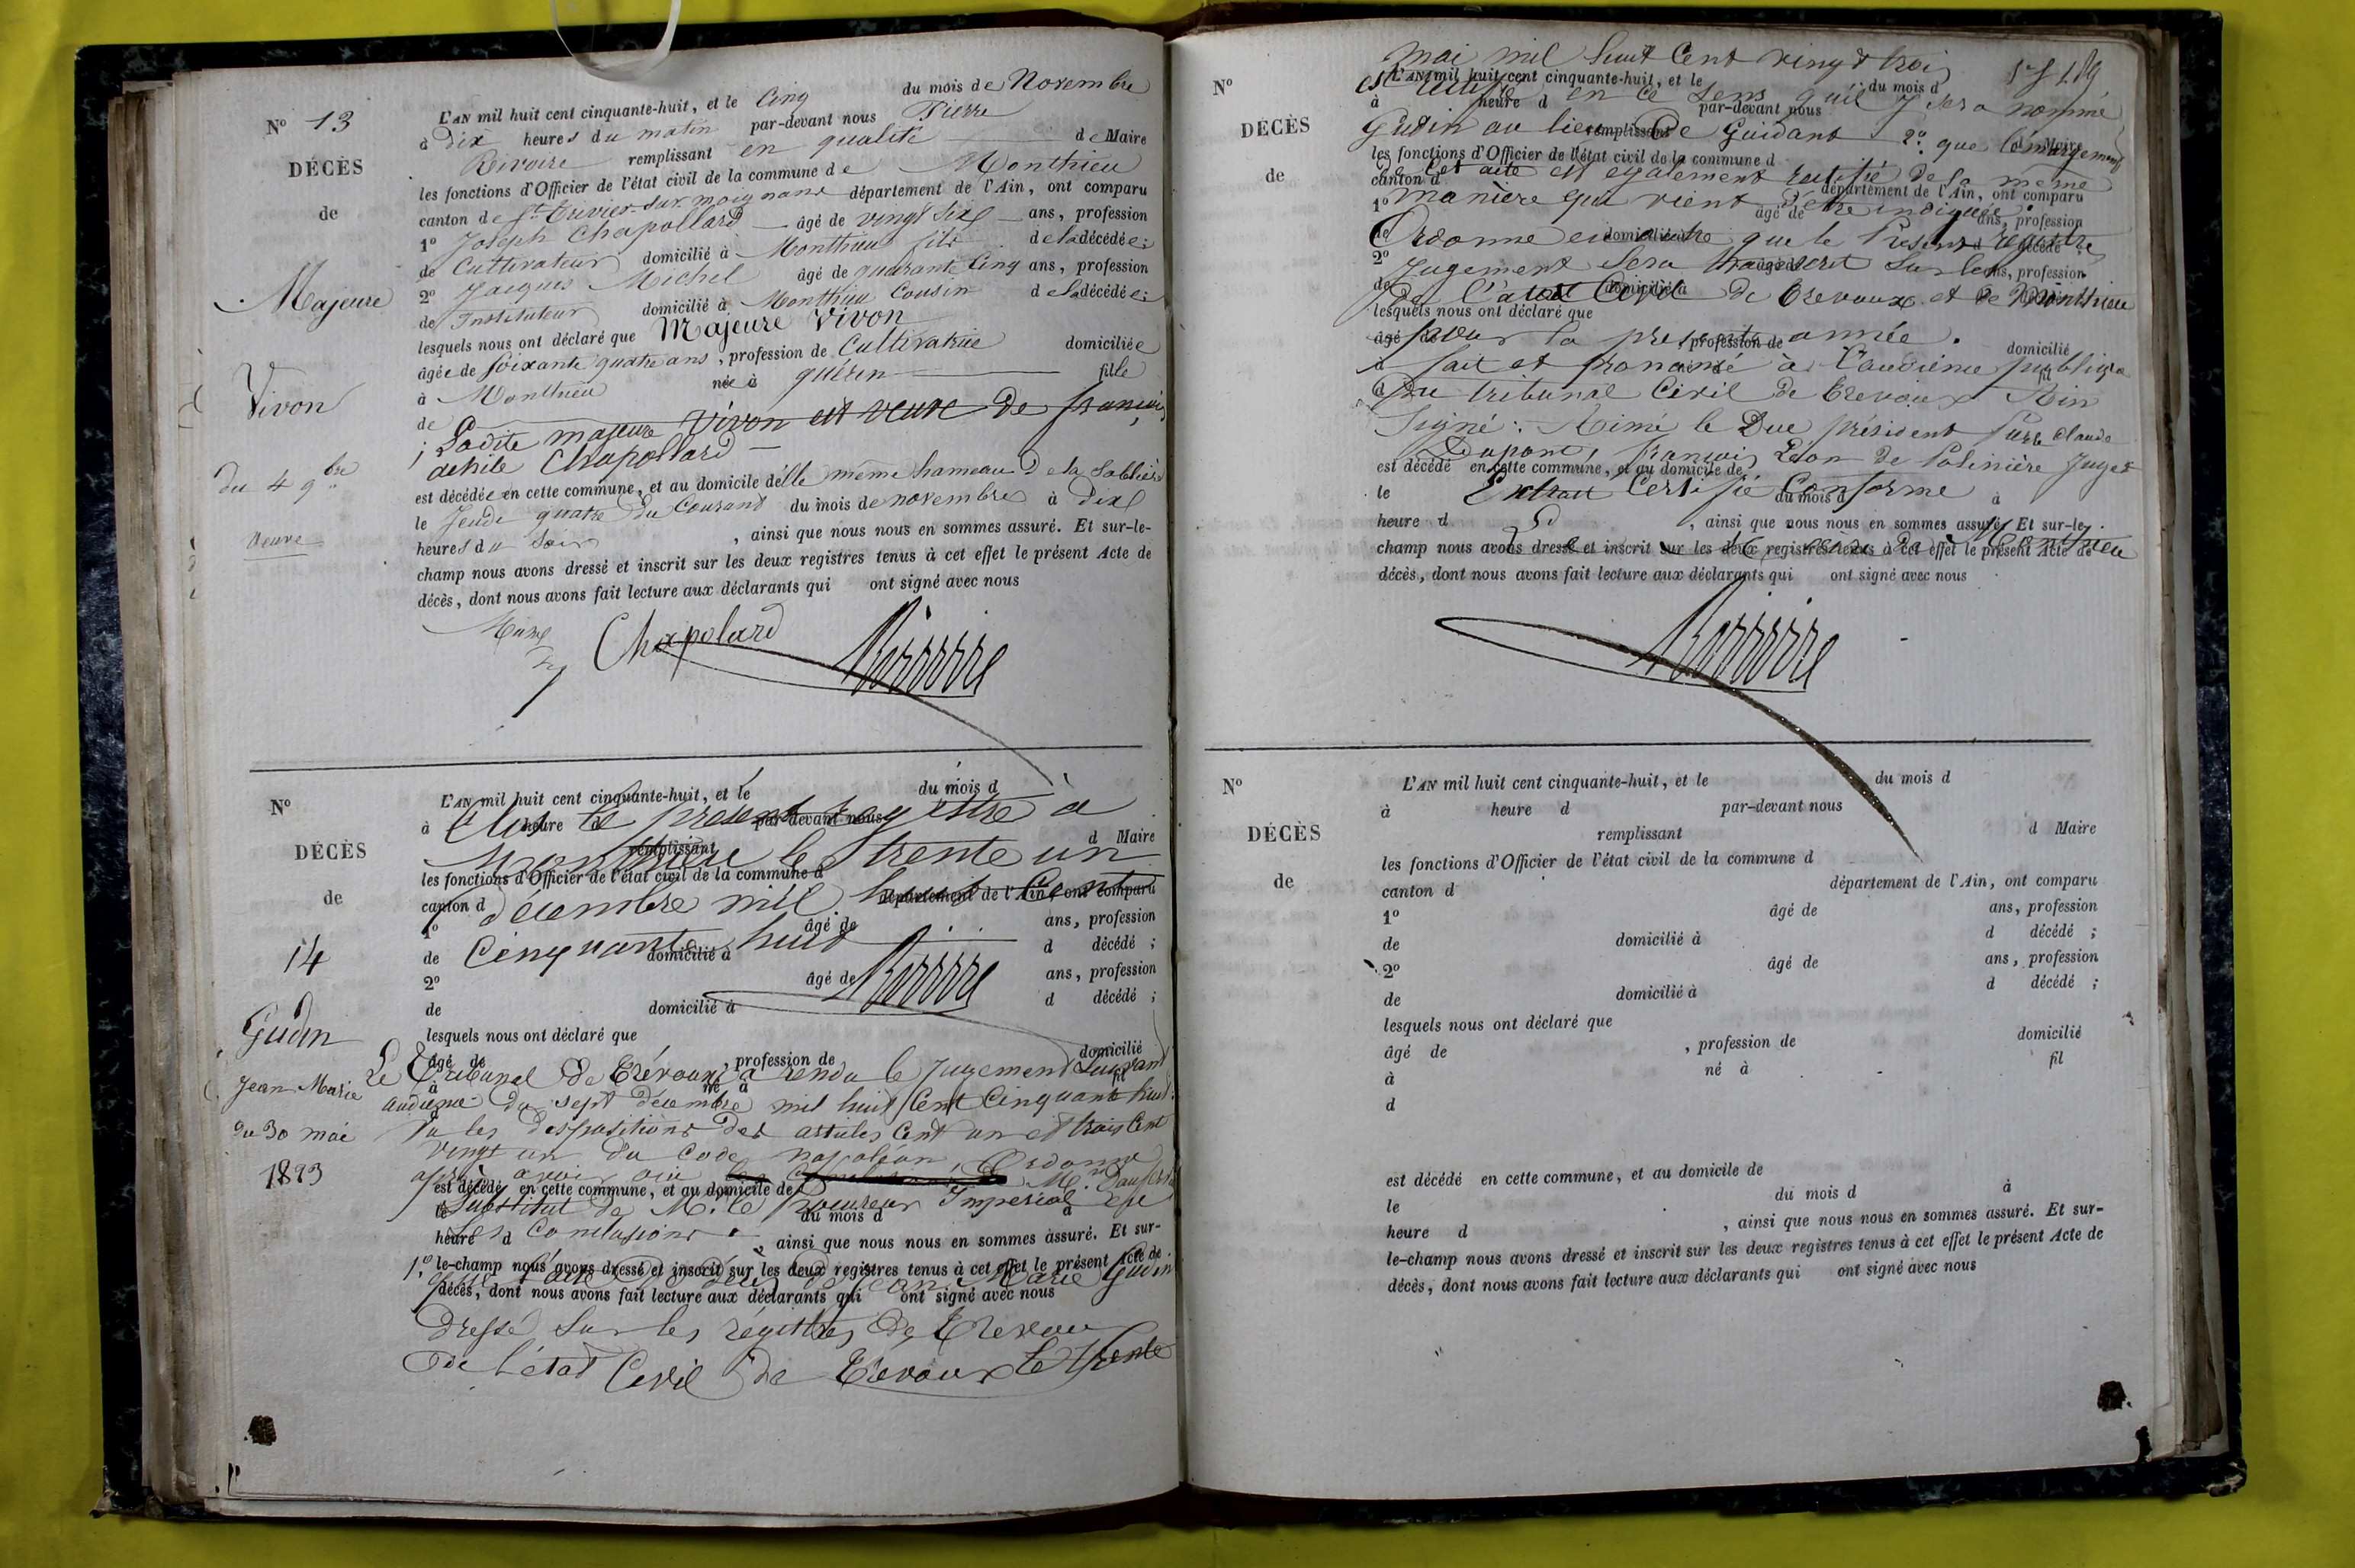 N° 13
DÉCÈS
de
Majeure
Vivon
du 4 9bre
veuve
L'AN mil huit cent cinquante-huit, et le Cinq du mois de Novembre
à dix heures du matin par-devant nous Pierre
Rivoire remplissant en qualité de Maire
les fonctions d'Officier de l'état civil de la commune de Monthieu
canton de St Trivier-sur-moignans département de l'Ain, ont comparu
1° Joseph Chapollard âgé de vingt six ans, profession
de Cultivateur domicilié à Monthieu fils de la décédée;
2° Jacques Michel âgé de quarante Cinq ans, profession
de Instituteur domicilié à Monthieu Cousin de la décédée;
lesquels nous ont déclaré que Majeure Vivon
âgée de soixante quatre ans, profession de Cultivatrice domiciliée
à Monthieu née à fille
de
; Ladite majeure Vivon est veuve de françois
Chapollard
est décédée en cette commune, et au domicile d'elle même hameau de la Sablière
le Jeudi quatre du Courand du mois de novembre à dix
heures du soir, ainsi que nous nous en sommes assuré. Et sur-le-
champ nous avons dressé et inscrit sur les deux registres tenus à cet effet le présent Acte de
décès, dont nous avons fait lecture aux déclarants qui ont signé avec nous
Chapolard Rivoire
N°
DÉCÈS
de
14
Gudin
Jean Marie
du 30 mai
L'AN mil huit cent cinquante-huit, et le du mois d
à heure d par-devant nous
Clos le présent registre à
remplissant d Maire
Monthieu le trente un
les fonctions d'Officier de l'état civil de la commune d
canton d département de l'Ain, ont comparu
décembre mil huit Cent
1° âgé de ans, profession
Cinquante huit
de domicilié à d décédé ;
2° âgé de ans, profession
Rivoire
de domicilié à d décédé ;
lesquels nous ont déclaré que
âgé de , profession de domicilié
Le Tribunal de Trévoux a rendu le Jugement Suivant
à né à fil
audience du sept décembre mil huit Cent Cinquante huit
Vu les dispositions des articles Cent un et trois Cent
vingt un du Code napoléon, Ordonne
après avoir oui Mr.
est décédé en cette commune, et au domicile de
Substitut de M. le Procureur Imperial
le du mois d à
ses Conclusions
heure d , ainsi que nous nous en sommes assuré. Et sur-
le-champ nous avons dressé et inscrit sur les deux registres tenus à cet effet le présent Acte de
1° que l'acte de décès de Jean Marie Gudin
décès, dont nous avons fait lecture aux déclarants qui ont signé avec nous
Dressé sur les régistres de Trevoux
de l'état Civil de Trevoux le trente
N°
DÉCÈS
de
mai mil huit Cent vingt trois
L'AN mil huit cent cinquante-huit, et le du mois d
est rectifié en ce sens qu'il y sera nommé
à heure d par-devant nous
Gudin au lieu de Guidant 2° que l'émargement
remplissant d Maire
les fonctions d'Officier de l'état civil de la commune d
de cet acte est également rectifié de la même
canton d département de l'Ain, ont comparu
manière qui vient d'être indiquée.
1° âgé de ans, profession
Ordonne en outre que le Present
de domicilié à d décédé ;
2° âgé de ans, profession
Jugement sera transcrit sur les registres
de domicilié à
de l'état Civil de Trevoux et de Monthieu
lesquels nous ont déclaré que
pour la presente année.
âgé de , profession de domicilié
fait et prononcé à l'audience publique
à né à fil
du tribunal Civil de Trevoux Ain
d
Signé: Aimé le Duc président Pierre Claude
Dupont, françois Léon de Polinière Juges
est décédé en cette commune, et au domicile de
Extrait Certifié Conforme
le du mois d à
heure d , ainsi que nous nous en sommes assuré. Et sur-le-
Le Maire de Monthieu
champ nous avons dressé et inscrit sur les deux registres tenus à cet effet le présent Acte de
décès, dont nous avons fait lecture aux déclarants qui ont signé avec nous
Rivoire
N°
DÉCÈS
de
L'AN mil huit cent cinquante-huit, et le du mois d
à heure d par-devant nous
remplissant d Maire
les fonctions d'Officier de l'état civil de la commune d
canton d département de l'Ain, ont comparu
1° âgé de ans, profession
de domicilié à d décédé ;
2° âgé de ans, profession
de domicilié à d décédé ;
lesquels nous ont déclaré que
âgé de , profession de domicilié
à né à fil
d
est décédé en cette commune, et au domicile de
le du mois d à
heure d , ainsi que nous nous en sommes assuré. Et sur-
le-champ nous avons dressé et inscrit sur les deux registres tenus à cet effet le présent Acte de
décès, dont nous avons fait lecture aux déclarants qui ont signé avec nous